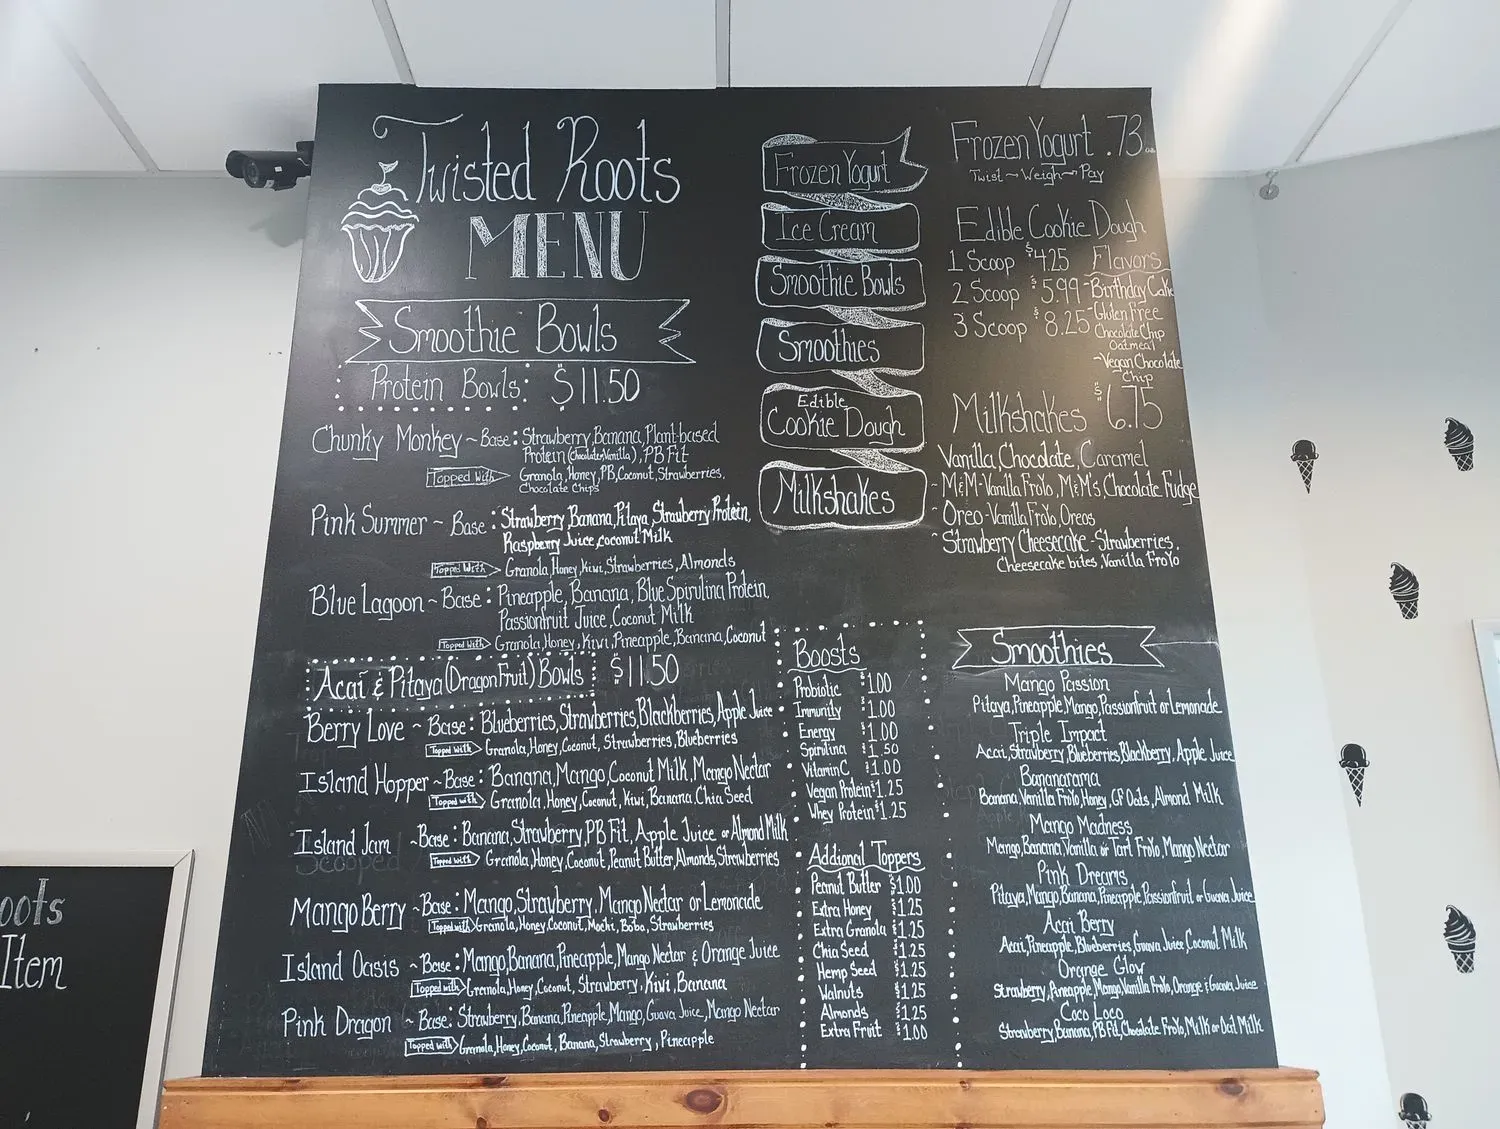 Twisted Roots
MENU
Smoothie Bowls
Protein Bowls: $11.50
Chunky Monkey ~ Base: Strawberry, Banana, Plant-based
Protein (Chocolate, Vanilla), PB Fit
Topped With Granola, Honey, PB, Coconut, Strawberries,
Chocolate Chips
Pink Summer ~ Base: Strawberry, Banana, Pitaya, Strawberry Protein,
Raspberry Juice, coconut Milk
Topped With Granola, Honey, Kiwi, Strawberries, Almonds
Blue Lagoon ~ Base: Pineapple, Banana, Blue Spirulina Protein,
Passionfruit Juice, Coconut Milk
Topped with Granola, Honey, Kiwi, Pineapple, Banana, Coconut
Acai & Pitaya (Dragon Fruit) Bowls $11.50
Berry Love ~ Base: Blueberries, Strawberries, Blackberries, Apple Juice
Topped with Granola, Honey, Coconut, Strawberries, Blueberries
Island Hopper ~ Base: Banana, Mango, Coconut Milk, Mango Nectar
Topped with Granola, Honey, Coconut, Kiwi, Banana, Chia Seed
Island Jam ~ Base: Banana, Strawberry, PB Fit, Apple Juice or Almond Milk
Topped with Granola, Honey, Coconut, Peanut Butter, Almonds, Strawberries
Mango Berry ~ Base: Mango, Strawberry, Mango Nectar or Lemonade
Topped with Granola, Honey, Coconut, Mochi, Boba, Strawberries
Island Oasis ~ Base: Mango, Banana, Pineapple, Mango Nectar & Orange Juice
Topped with Granola, Honey, Coconut, Strawberry, Kiwi, Banana
Pink Dragon ~ Base: Strawberry, Banana, Pineapple, Mango, Guava Juice, Mango Nectar
Topped with Granola, Honey, Coconut, Banana, Strawberry, Pineapple
Frozen Yogurt
Ice Cream
Smoothie Bowls
Smoothies
Edible
Cookie Dough
Milkshakes
Boosts
Probiotic $1.00
Immunity $1.00
Energy $1.00
Spirulina $1.50
Vitamin C $1.00
Vegan Protein $1.25
Whey Protein $1.25
Addional Toppers
Peanut Butter $1.00
Extra Honey $1.25
Extra Granola $1.25
Chia Seed $1.25
Hemp Seed $1.25
Walnuts $1.25
Almonds $1.25
Extra Fruit $1.00
Frozen Yogurt .73 oz
Twist ~ Weigh ~ Pay
Edible Cookie Dough
1 Scoop $4.25 Flavors
2 Scoop $5.99 - Birthday Cake
3 Scoop $8.25 - Gluten Free
Chocolate Chip
Oatmeal
- Vegan Chocolate
Chip
Milkshakes $6.75
Vanilla, Chocolate, Caramel
- M&M - Vanilla FroYo, M&M's, Chocolate Fudge
- Oreo - Vanilla FroYo, Oreos
- Strawberry Cheesecake - Strawberries,
Cheesecake bites, Vanilla FroYo
Smoothies
Mango Passion
Pitaya, Pineapple, Mango, Passionfruit or Lemonade
Triple Impact
Acai, Strawberry, Blueberries, Blackberry, Apple Juice
Bananarama
Banana, Vanilla FroYo, Honey, GF Oats, Almond Milk
Mango Madness
Mango, Banana, Vanilla or Tart FroYo, Mango Nectar
Pink Dreams
Pitaya, Mango, Banana, Pineapple, Passionfruit or Guava Juice
Acai Berry
Acai, Pineapple, Blueberries, Guava Juice, Coconut Milk
Orange Glow
Strawberry, Pineapple, Mango, Vanilla FroYo, Orange & Guava Juice
Coco Loco
Strawberry, Banana, PB Fit, Chocolate FroYo, Milk or Oat Milk
oots
Item